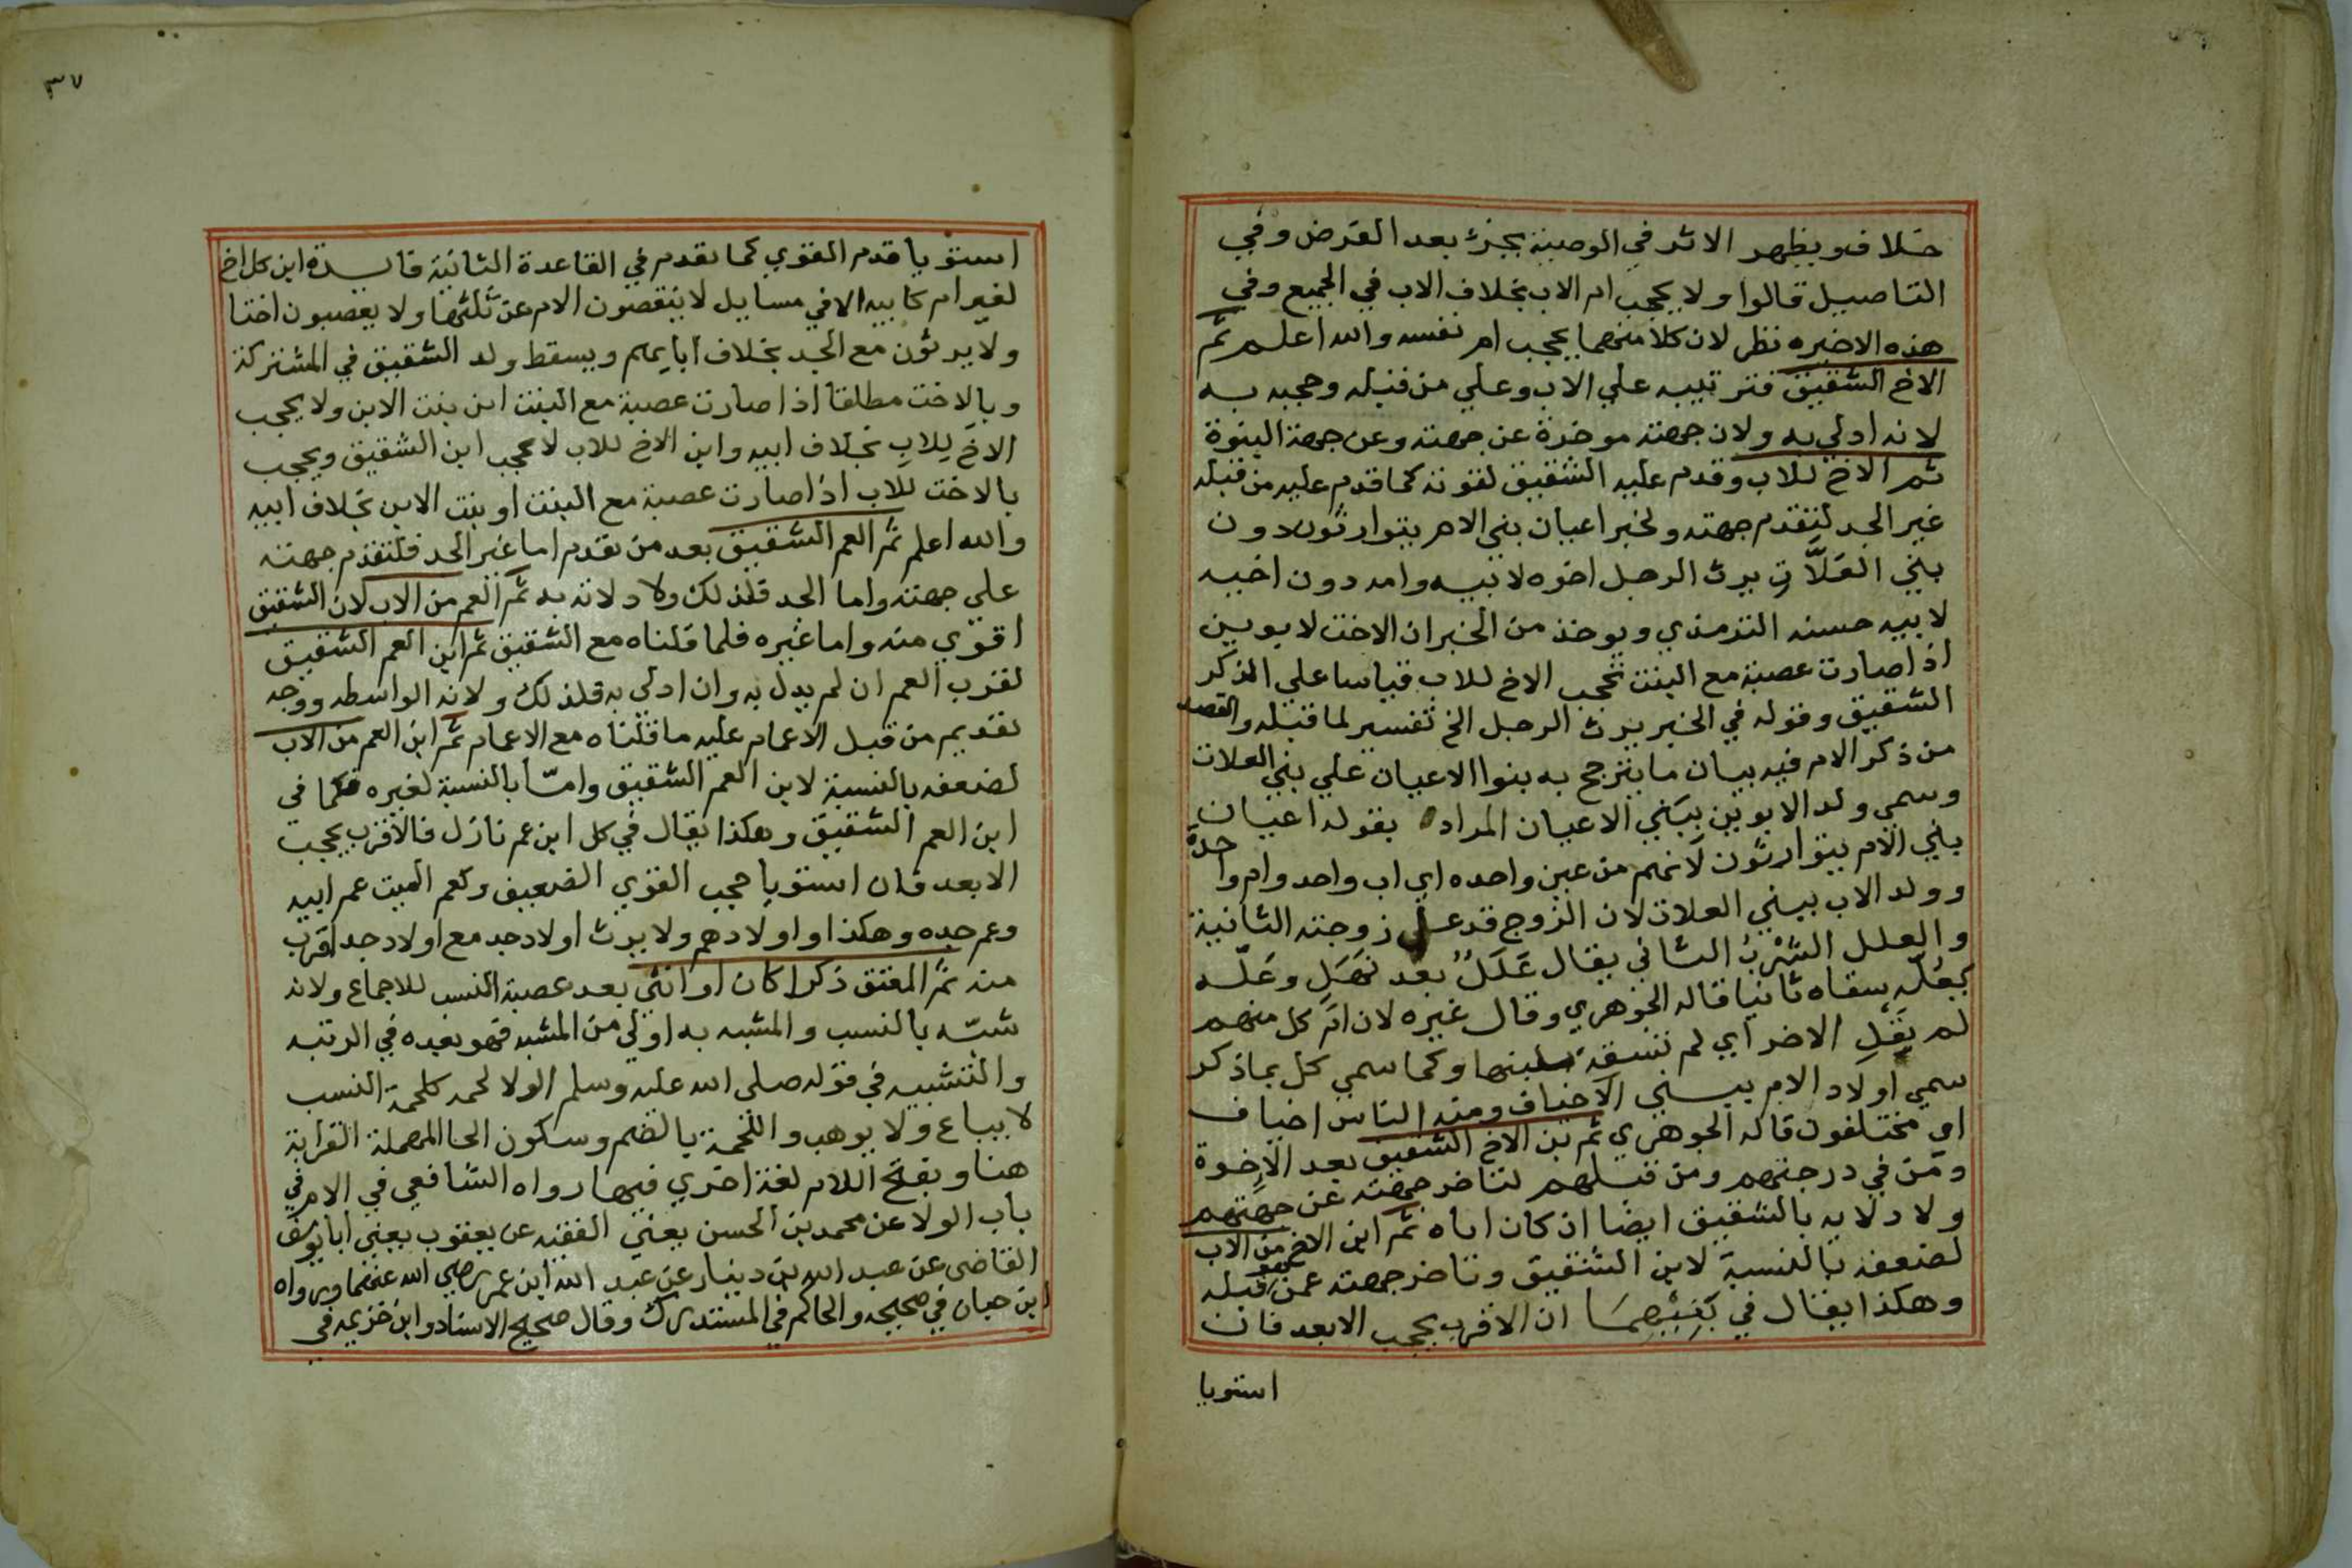 خلاف ويظهر الاثر في الوصية بجزء بعد الفرض وفي
التاصيل قالوا ولا يحجب ام الاب بخلاف الاب في الجميع وفي
هذه الاخيره نظر لان كلا منهما يحجب ام نفسه والله اعلم ثم
الاخ الشقيق فترتيبه علي الاب وعلي من قبله وحجبه به
لانه ادلي به ولان جهته موخرة عن جهته وعن جهة البنوة
ثم الاخ للاب وقدم عليه الشقيق لقوته كما قدم عليه من قبله
غير الجد لتقدم جهته ولخبر اعيان بني الام يتوارثون دون
بني العَلاَّتِ يرث الرجل اخوه لابيه وامه دون اخيه
لابيه حسنه الترمذي ويوخذ من الخبر ان الاخت لابوين
اذا صارت عصبة مع البنت تحجب الاخ للاب قياسا علي الذكر
الشقيق وقوله في الخبر يرث الرجل الخ تفسير لما قبله والقصد
من ذكر الام فيه بيان ما يترجح به بنوا الاعيان علي بني العلات
وسمي ولد الابوين ببَني الاعيان المراد بقوله اعيان
بني الام يتوارثون لانهم من عين واحده اي اب واحد وام واحدة
وولد الاب ببني العلات لان الزوج قد عل زوجته الثانية
والعلل الشُرْبُ الثاني يقال عَلَلٌ بعد نَهَلٍ وعَلّه
يعُلّه سقاه ثانيا قاله الجوهري وقال غيره لان ام كل منهم
لم تَعَلِ الاخر اي لم تسقه لبنها وكما سمي كل بما ذكر
سمي اولاد الام ببني الاخياف ومنه الناس اخياف
اي مختلفون قاله الجوهري ثم بن الاخ الشقيق بعد الاخوة
ومَن في درجتهم ومن قبلهم لتاخر جهته عن جهتهم
ولادلايه بالشقيق ايضا ان كان اباه ثم ابن الاخ من الاب
لضعفه بالنسبة لابن الشقيق وتاخر جهته عمن قبله
وهكذا يقال في بَنِيْهِمَا ان الاقرب يحجب الابعد فان
استويا
٣٧
استويا قدم القوي كما تقدم في القاعدة الثانية فايدة ابن كل اخ
لغير ام كابيه الا في مسايل لا ينقصون الام عن ثلثها ولا يعصبون اختا
ولا يرثون مع الجد بخلاف ابايهم ويسقط ولد الشقيق في المشتركة
وبالاخت مطلقا اذا صارت عصبة مع البنت ابن بنت الابن ولا يحجب
الاخَ لِلابِ بخلاف ابيه وابن الاخ للاب لا يحجب ابن الشقيق ويحجب
بالاخت للاب اذا صارت عصبة مع البنت او بنت الابن بخلاف ابيه
والله اعلم ثم العم الشقيق بعد من تقدم اما غير الجد فلتقدم جهته
علي جهته واما الجد فلذلك ولادلائه به ثم العم من الاب لان الشقيق
اقوي منه واما غيره فلما قلناه مع الشقيق ثم ابن العم الشقيق
لقرب العم ان لم يدل به وان ادلي به فلذلك ولانه الواسطه ووجه
تقديم من قبل الاعمام عليه ما قلناه مع الاعمام ثم ابن العم من الاب
لضعفه بالنسبة لابن العم الشقيق وامّا بالنسبة لغيره فكما في
ابن العم الشقيق وهكذا يقال في كل ابن عم نازل فالاقرب يحجب
الابعد فان استويا حجب القوي الضعيف وكعم الميت عم ابيه
وعم جده وهكذا واولادهم ولا يرث اولاد جد مع اولاد جد اقرب
منه ثم المعتق ذكرا كان او انثي بعد عصبة النسب للاجماع ولانه
شبّه بالنسب والمشبه به اولي من المشبه فهو بعده في الرتبه
والتشبيه في قوله صلى الله عليه وسلم الولا لحمة كلحمة النسب
لا يباع ولا يوهب واللحمة بالضم وسكون الحا المهملة القرابة
هنا وبفتح اللام لغة اخري فيها رواه الشافعي في الام في
باب الولا عن محمد بن الحسن يعني الفقيه عن يعقوب يعني ابا يوسف
القاضى عن عبد الله بن دينار عن عبد الله ابن عمر رضي الله عنهما ورواه
ابن حبان في صحيحه والحاكم في المستدرك وقال صحيح الاسناد وابن خزيمه في